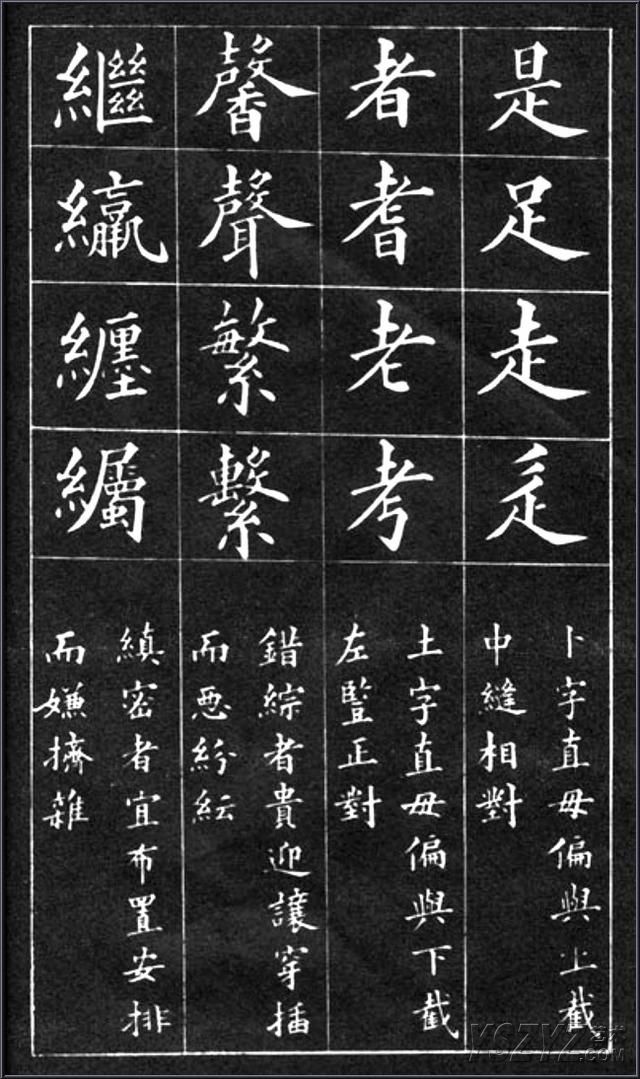 是足走辵
卜字直毋偏與上截
中縫相對
者耆老考
土字直毋偏與下截
左豎正對
馨聲繁繫
錯綜者貴迎讓穿插
而惡紛紜
繼纏
縝密者宜布置安排
而嫌擠雜